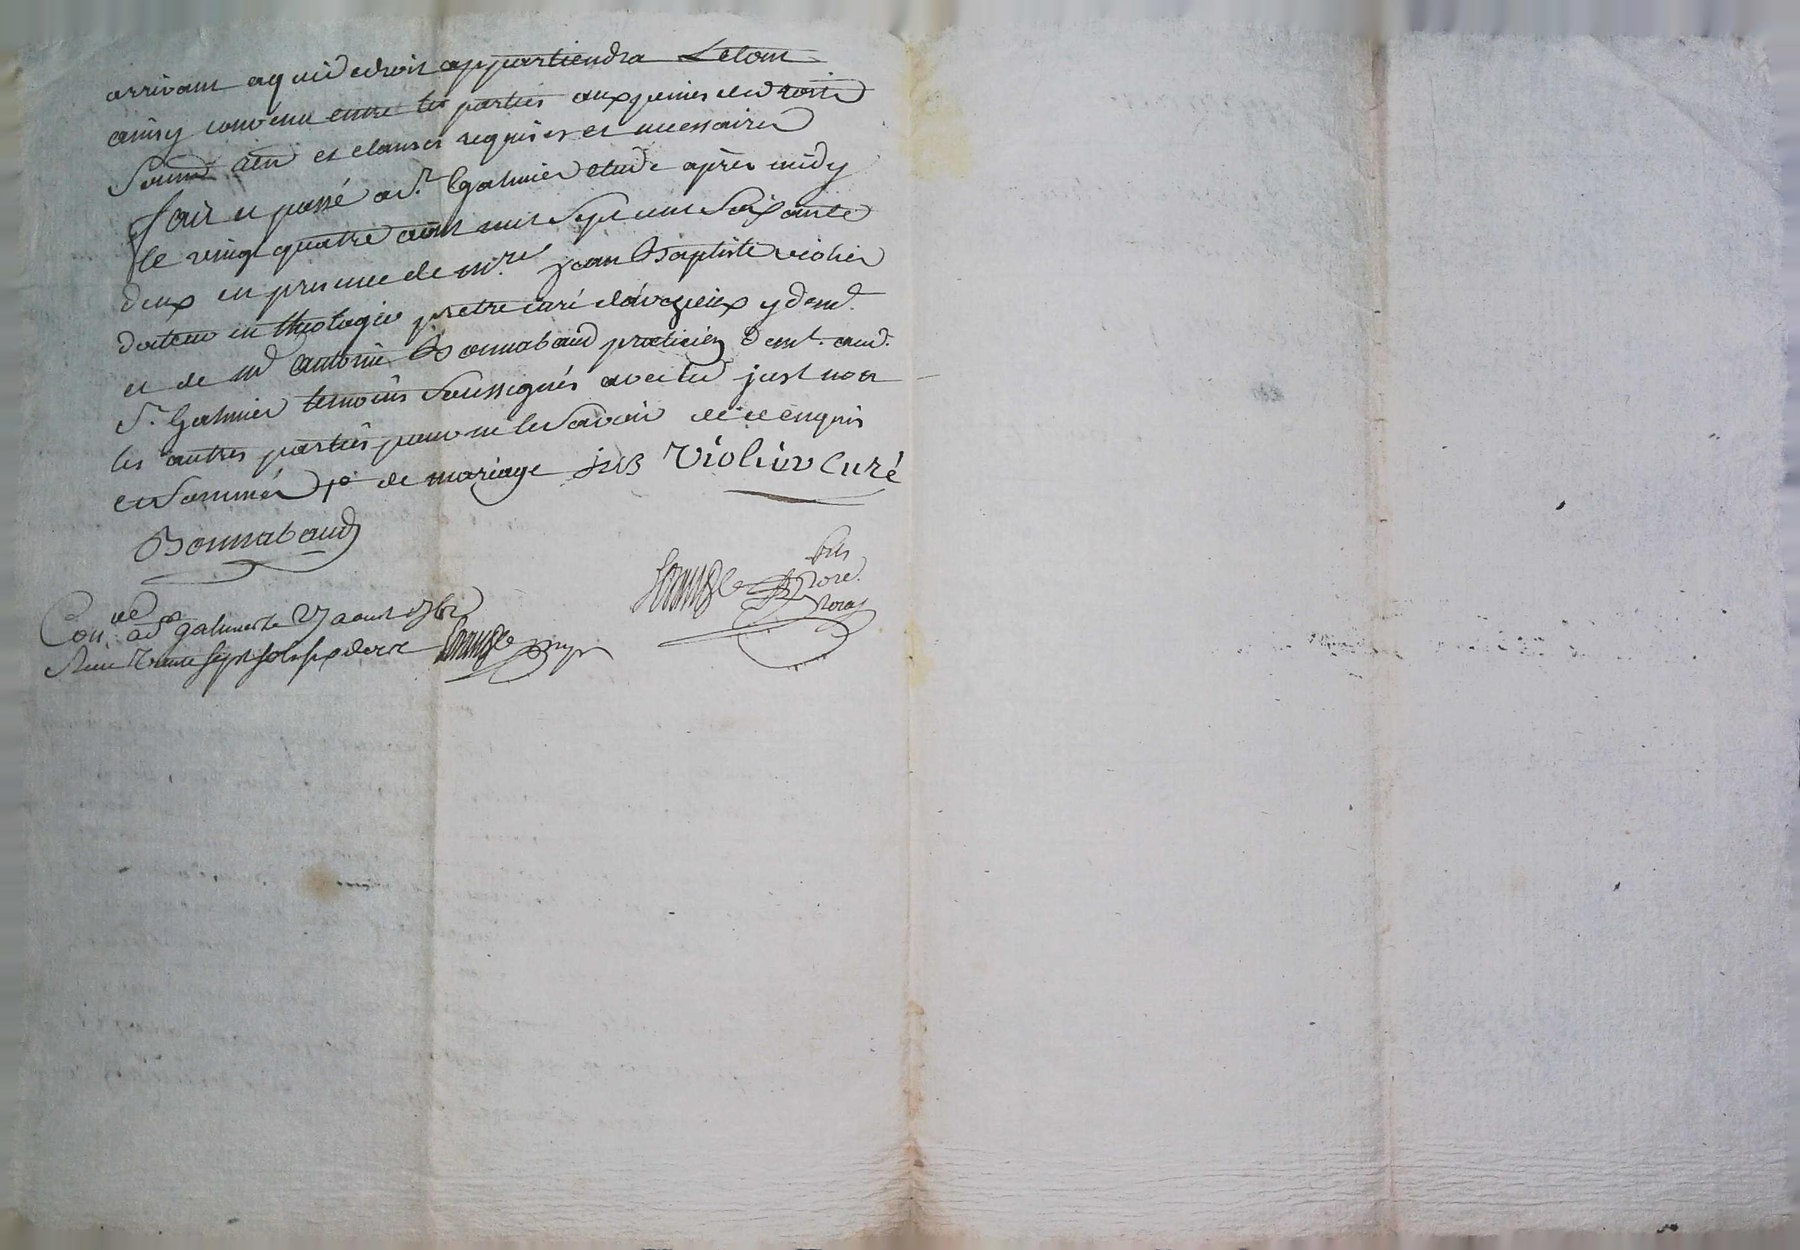 arrivant a qui de droit appartiendra Le tout
ainsy convenu entre les parties aux peines de droits
Soumons aon et clauses requises et necessaires
fait et passé a St. Galmier etude après midy
le vingt quatre aout mil Sept cent Soixante
deux en presence de mre. jean Baptiste violier
docteur en theologie pretre curé daveizieux y demt.
et de md antoine Bonnabaud praticien demt. aud.
St. Galmier temoins Soussignés avec led just non
les autres parties pour ne le Savoir de ce enquis
et Sommés de mariage Violier Curé
Bonnabaud
fils
Nore.
Royal
Con. ve a St galmier le 27 aout 1762
Recu Trente sept sols six deniers